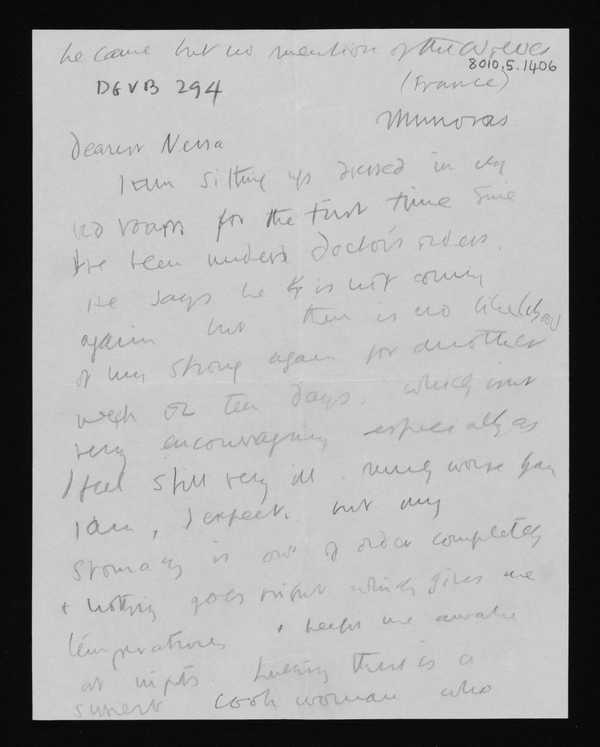 he came but no mention of the wives
8010.5.1406
(France)
DGVB 294
Dearest Nessa
I am sitting up dressed in my
room for the first time since
I've been under doctor's orders.
He says he is not coming
again but there is no likelihood
of my strong again for another
week or ten days. which isnt
very encouraging especially as
I feel still very ill. much worse than
I am, I expect. but my
stomach is out of order completely
+ nothing goes right which gives me
temperatures + keeps me awake
at nights. Luckily there is a
superb cook woman who